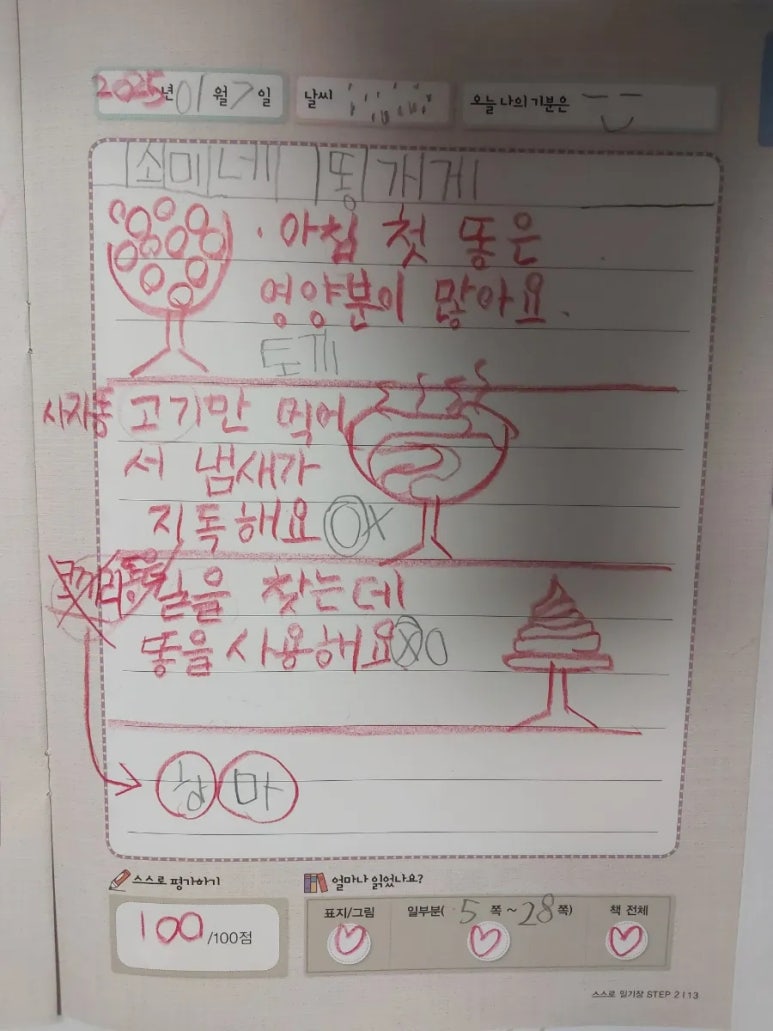 2025년 01월 7일 날씨 오늘 나의 기분은
쇠미네 똥가게
· 아침 첫 똥은
영양분이 많아요.
토끼
사자똥 고기만 먹어
서 냄새가
지독해요 OX
코끼리똥 길을 찾는데
똥을 사용해요 XO
하마
스스로 평가하기 얼마나 읽었나요?
표지/그림 일부분( 5 쪽 ~ 28 쪽) 책 전체
100 /100점
스스로 일기장 STEP 2 | 13